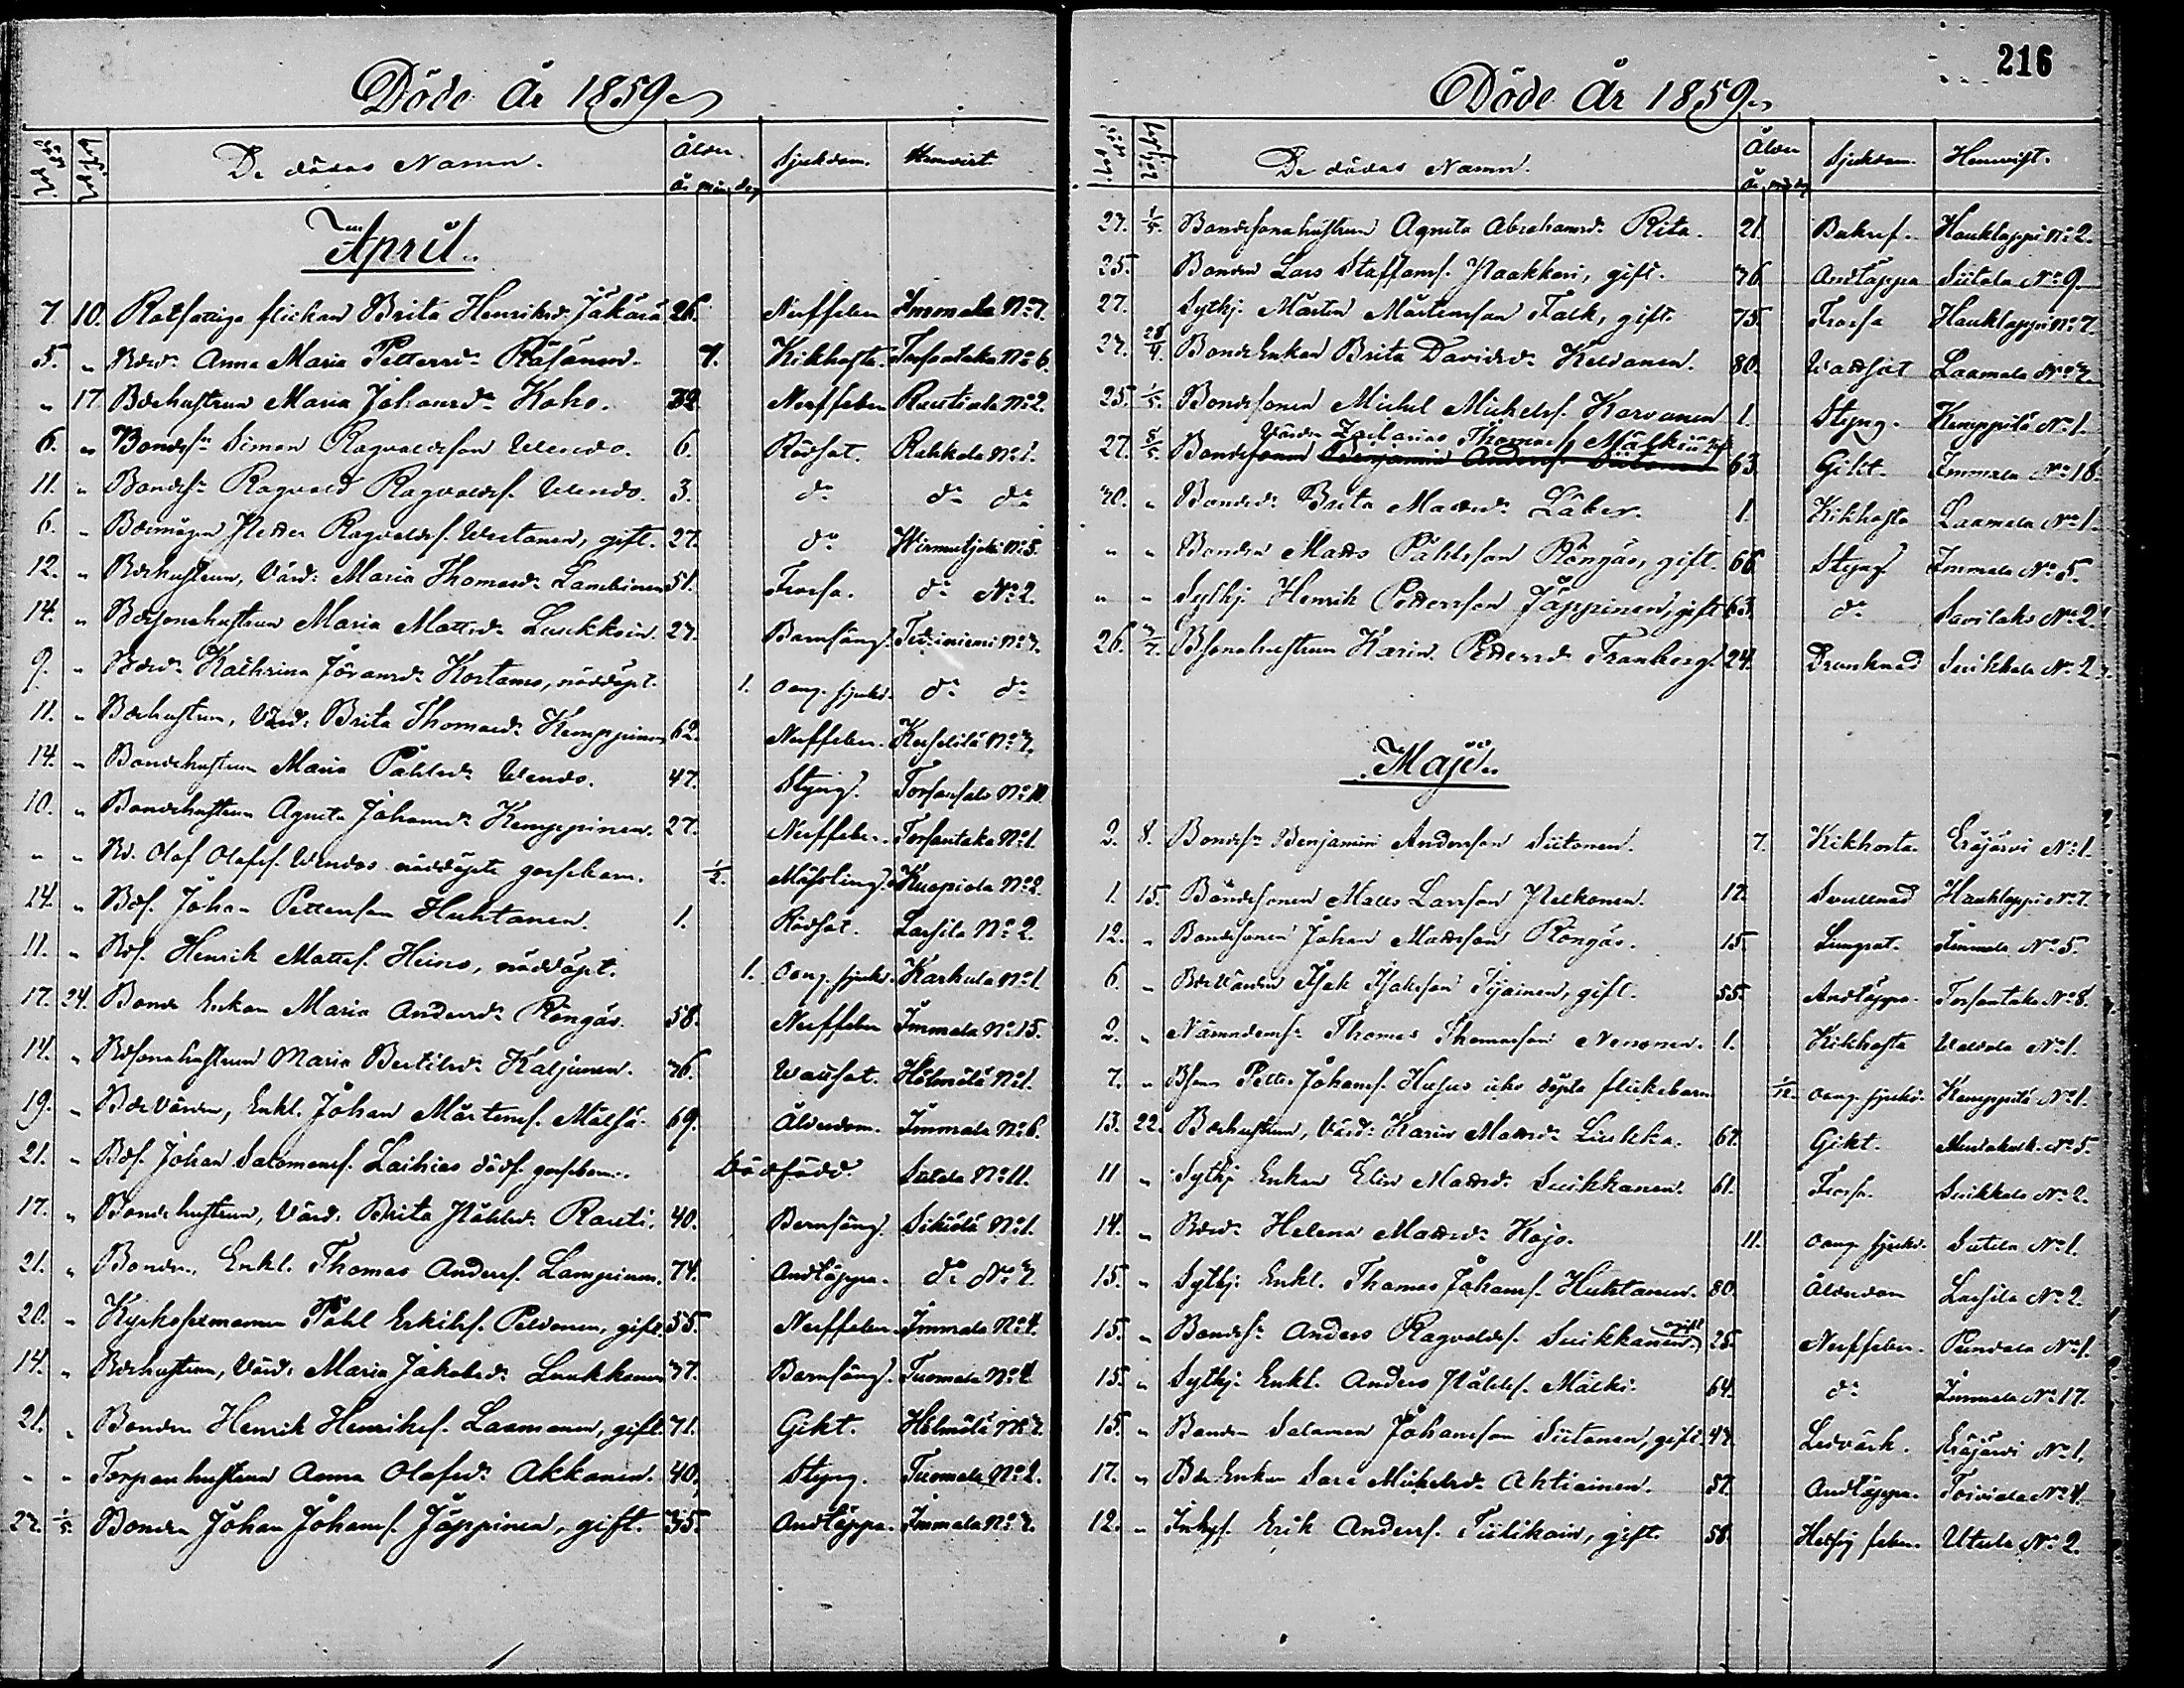 Döde År 1859
död dag. begr. dag De dödas Namn. Ålder år mån dag Sjukdom. Hemvist
April.
7. 10. Rotfattiga flickan Brita Henriksd:r Jäkärä 26. Nerffeber Immala No 7.
5. " Bded:r Anna Maria Pettersd:r Räsänen. 7. Kikhosta. Torsantaka No 6.
" 17 Bdehustrun Maria Johansd:r Koho. 32 Nerffeber Rautiala No 2.
6. " Bondes:n Simon Ragvaldsson Wendo. 6. Rödsot. Rahkola No 1.
11. " Bondes:n Ragvald Ragvaldss. Wendo. 3. d:o d:o d:o
6. " Bdemågen Petter Ragvaldss. Westanen, gift. 27. d:o Wirmutjoki No 5.
12. " Bdehustrun, Värd: Maria Thomasd:r Lambinen 51. Frossa. d:o No 2.
14. " Bdesonahustrun Maria Mattsd:r Luukkoin. 27. Barnsäng. No 7.
9. " Bded:r Kathrina Jöransd:r Kortamo, nöddöpt. 1. Oang. sjukd. d:o d:o
11. " Bdehustrun, Värd: Brita Thomasd:r Kemppinen 62. Nerffeber. Kesselilä No 7.
14. " Bondehustrun Maria Påhlsd:r Wendo. 47. Styng. Torsansalo No 10.
10. " Bondehustrun Agneta Johansd:r Kemppinen. 27. Nerffeber. Torsantaka No 1.
" " Bd. Olof Olofss. Wendos nöddöpte gossebarn. 1/2. Mässling. Kuopiala No 2.
14. " Bds. Johan Pettersson Huhtanen. 1. Rödsot. Lassila No 2.
11. " Bds. Henrik Mattss. Heino, nöddöpt. 1. Oang. sjukd. Karhula No 1.
17. 24. Bonde Enkan Maria Andersd:r Röngäs. 58. Nerffeber Immala No 15.
14. " Bdsonahustrun Maria Bertilsd:r Kaljunen. 76. Wattsot. Hölmölä No 1.
19. " BdeVärden, Enkl. Johan Mårtenss. Mälsä. 69. Ålderdom. Immala No 6.
21. " Bds. Johan Salomonss. Laihias dödf. gossebarn. Dödfödd. No 11.
17. " Bondehustrun, Värd. Brita Påhlsd:r Rauti. 40. Barnsäng. No 1.
21. " Bonden, Enkl. Thomas Anderss. Lampinen. 74. Andtäppa. d:o No 7.
20. " Kyrkosexmannen Påhl Erikss. Peldonen, gift. 55. Nerffeber. Immala No 4.
14. " Bdehustrun, Värd: Maria Jakobsd:r Luukkonen 37. Barnsäng. Tuomala No 4.
21. " Bonden Henrik Henrikss. Laamanen, gift. 71. Gikt. Hölmölä No 7.
" " Torparehustrun Anna Olofsd:r Akkanen. 40, Styng. Tuomala No 2.
27. 1/5. Bonden Johan Johanss. Jäppinen, gift. 35. Andtäppa. Immala No 7.
216
Döde År 1859
död dag. begr. dag De dödas Namn. Ålder år mån dag Sjukdom. Hemvist.
27. 1/5. Bondesonahustrun Agneta Abrahamsd:r Rita. 21. Bukref. Hauklappi No 2.
25. Bonden Lars Staffanss. Naakkeri, gift. 76. Andtäppa Siitola No 9.
27. Sythj. Mårten Mårtensson Falk, gift. 75. Frossa Hauklappi No 7.
27. 28/4 BondeEnkan Brita Davidsd:r Keldanen. 80. Wattsot Laamala No 7.
25. 1/5. Bondesonen Michel Michelss. Karvonen 1. Styng. Kemppilä No 1.
Värden Zacharias Thomass. Mälkiä
27. 8/5. Bondesonen Benjamin Anderss. Siitonen 63. Gikt. Immala No 18.
30. " Bonded:r Brita Mattsd:r Läber. 1. Kikhosta Laamala No 1.
" " Bonden Matts Påhlsson Röngäs, gift. 66 Styng Immala No 5.
" " Sythj. Henrik Pettersson Jäppinen, gift 63. d:o Savilaks No 2.
26. Bsonahustrun Karin Pettersd:r Franberg 24. Drunknad Suikkala No 2.
Maji.
2. 8. Bondes:n Benjamin Andersson Siitonen. 7. Kikhosta Eräjärvi No 1.
1. 15. Bondesonen Matts Larsson Pelkonen. 12. Svullnad Hauklappi No 7.
12. " Bondesonen Johan Mattsson Röngäs. 15. Lungsot. Immala No 5.
6. " BdeVärden Isak Isaksson Tijainen, gift. 55. Andtäppa. Torsantaka No 8.
2. " Nämndems:n Thomas Thomasson Nenonen. 1. Kikhosta No 1.
7. " Bsons Petter Johanss. Husus icke döpta flickebarn 1/12. Oang. sjukd. Kemppilä No 1.
13. 22. Bdehustrun, Värd: Karin Mattsd:r Liukka. 67. Gikt. No 5.
11 " Sythj Enkan Elin Mattsd:r Suikkanen. 61. Frossa. Suikkala No 2.
14. " Bded:r Helena Mattsd:r Kojo. 11. Oang. sjukd. Siitola No 1.
15. " Sythj. Enkl. Thomas Johanss. Huhtanen. 80. Ålderdom Lassila No 2.
15. " Bondes:n Anders Ragvaldss. Suikkanen. ogift 25. Nerffeber. No 1.
15. " Sythj. Enkl. Anders Påhlss. Mälki. 64. d:o Immala No 17.
15. " Bonden Salomon Johansson Siitonen, gift. 47. Ledvärk. Eräjärvi No 1.
17. " Bde Enkan Sara Michelsd:r Ahtiainen. 57. Andtäppa. Toiviala No 4.
12. " Inhys. Erik Anderss. Tiilikain, gift. 58. Hetsig feber. Utula No 2.